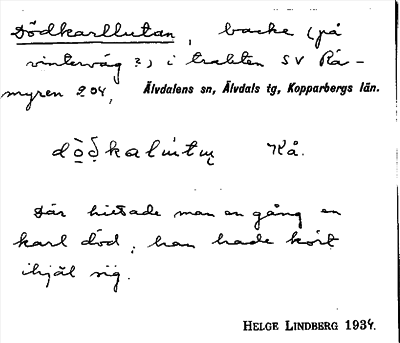 Dödkarllutan, backe (på
vinterväg ?) i trakten SV Rå-
myren 204, Älvdalens sn, Älvdals tg, Kopparbergs län.
Kå.
Där hittade man en gång en
karl död, han hade kört
ihjäl sig.
HELGE LINDBERG 1934.